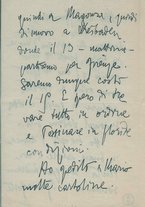 quindi a Magonza, quindi
di nuovo a Wiesbaden
donde il 13 - mattina -
partiremo per Firenze.
Saremo dunque costì
il 15. E spero di tro
vare tutto in ordine
e l'estinare in floride
condizioni.
Ho spedito, siamo
molte cartoline.